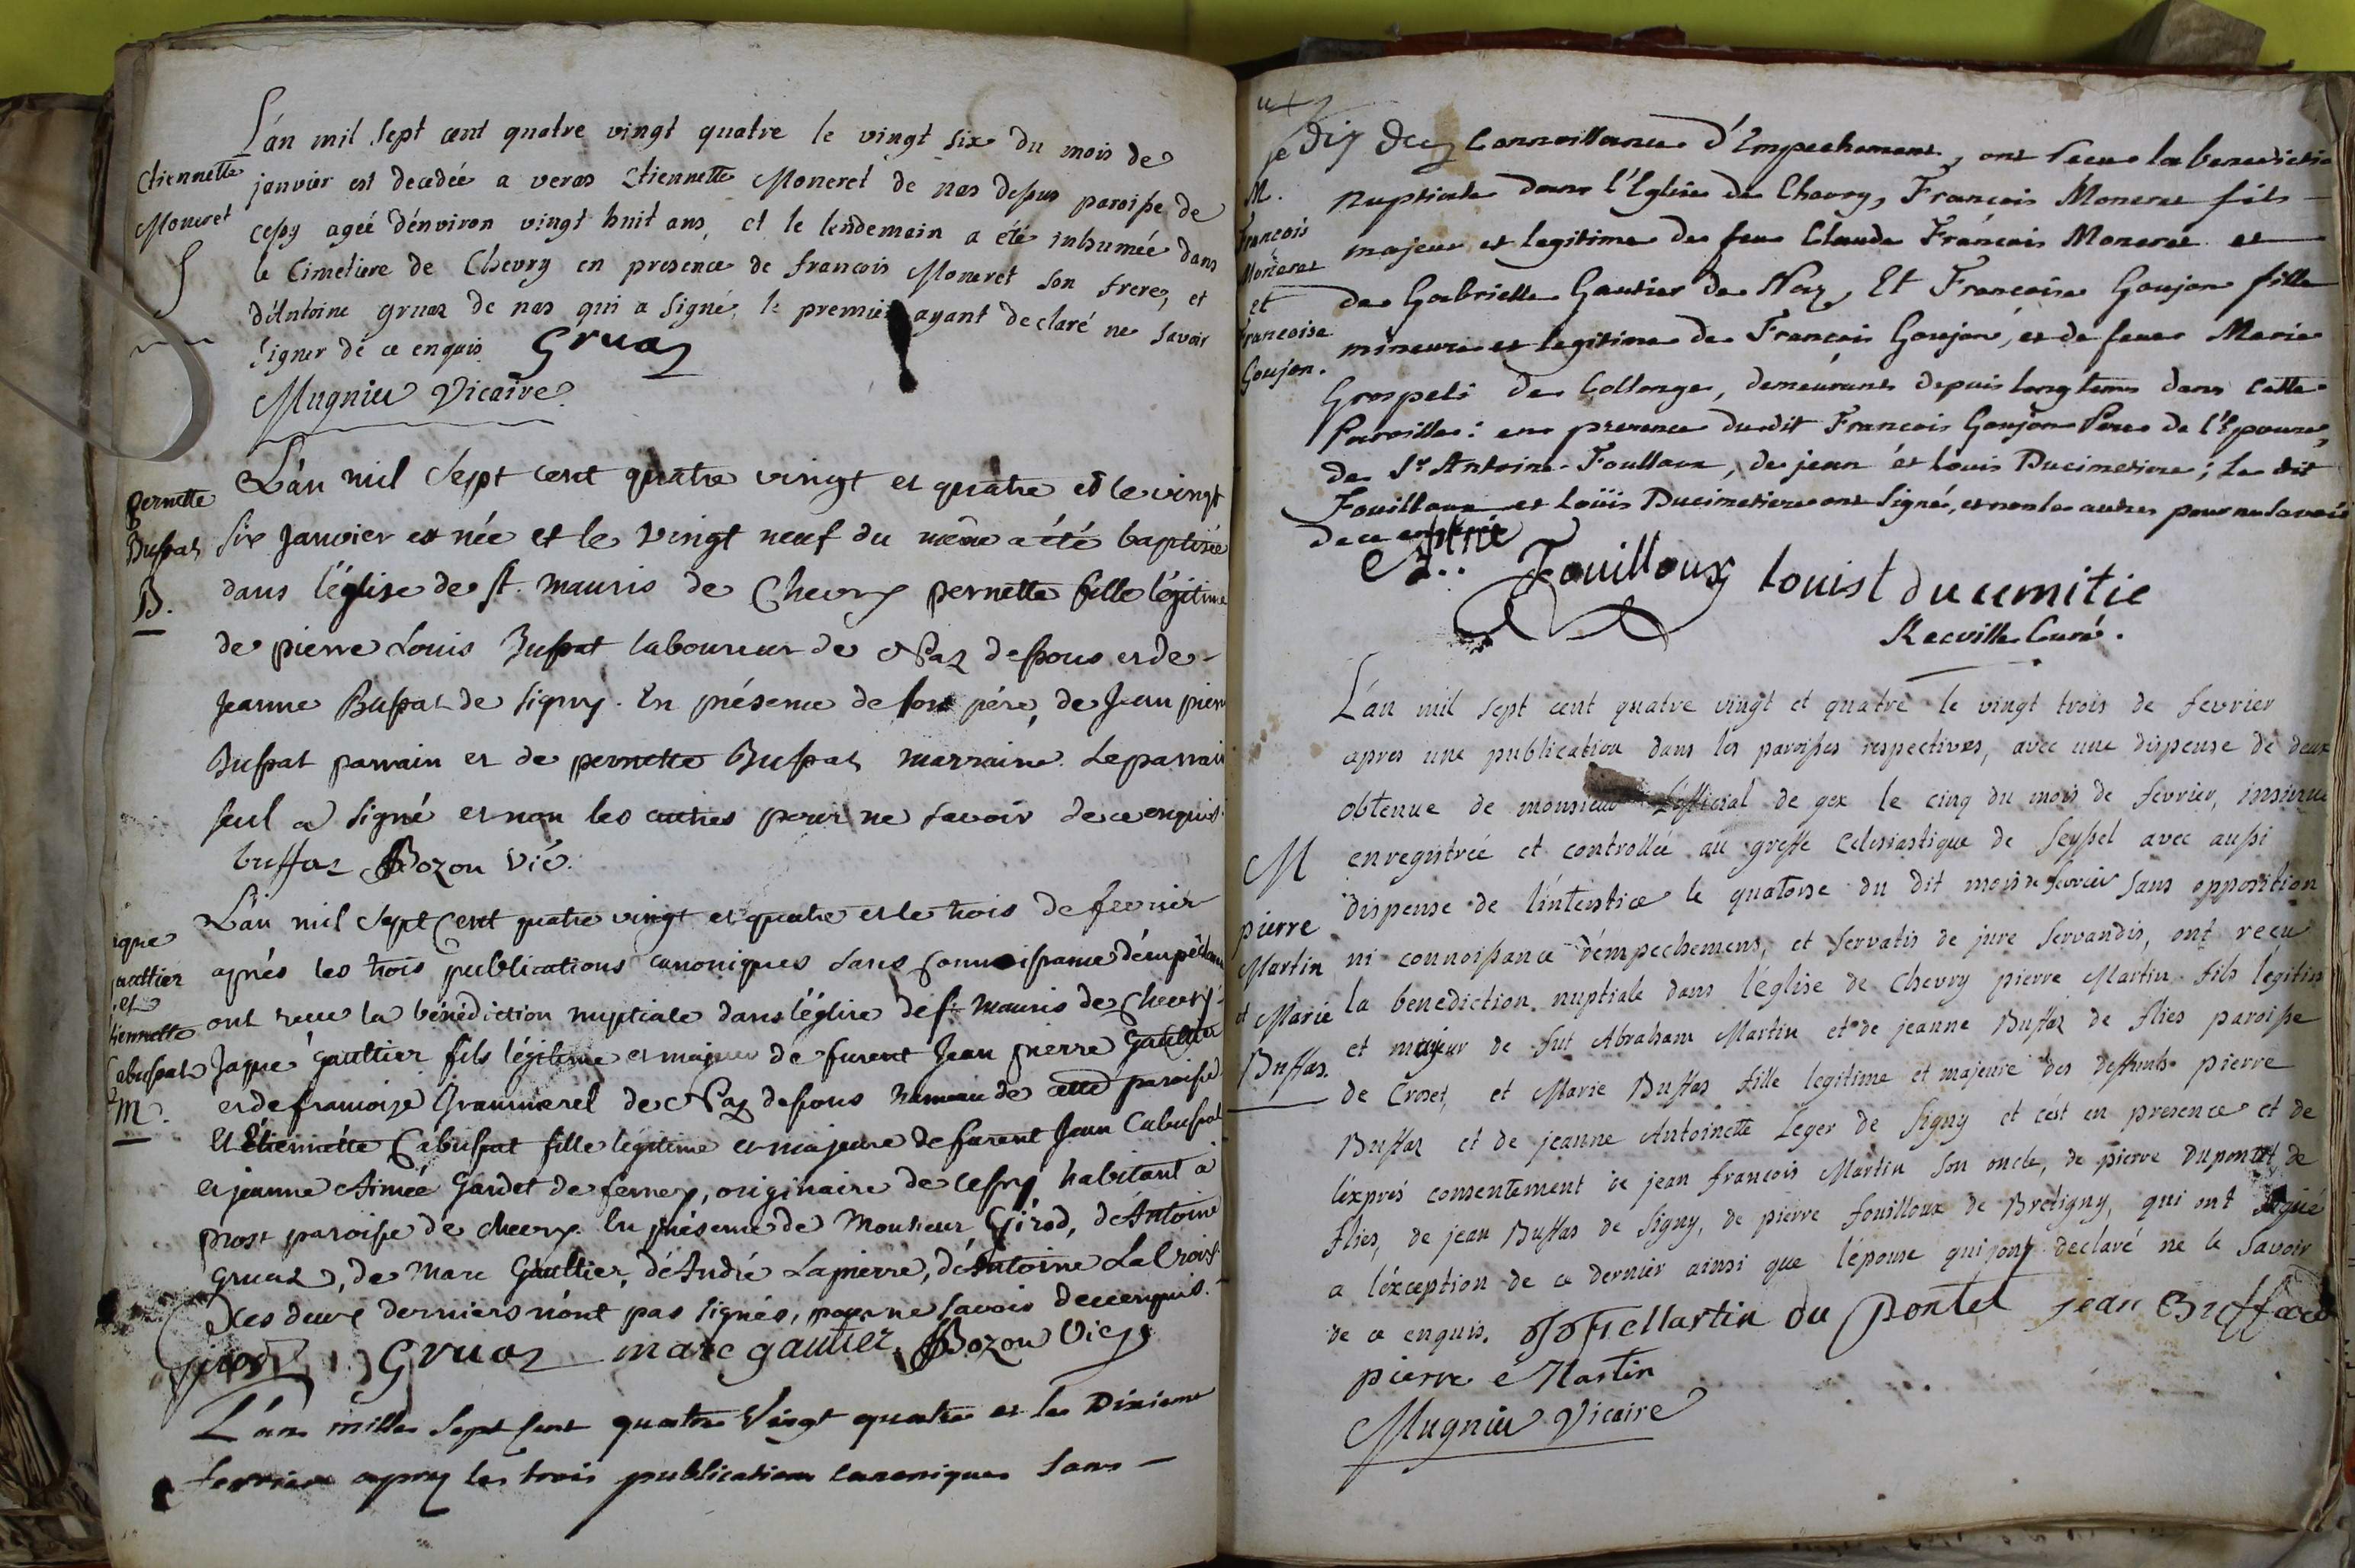 L'an mil sept cent quatre vingt quatre le vingt six du mois de
Etiennette
Moneret
S
janvier est decedée a veras Etiennette Moneret de nas dessus paroisse de
cessy ageé d'environ vingt huit ans, et le lendemain a été inhumée dans
le Cimetiere de Chevry en presence de francois Moneret son frere, et
d'Antoine gruaz de nas qui a signé, le premier ayant declaré ne savoir
signer de ce enquis. Gruaz
Mugnier Vicaire
pernette
Bussat
B.
L'an mil sept cent quatre vingt et quatre et le vingt
six janvier est née et le vingt neuf du même a été baptisée
dans l'église de st. mauris de Chevry pernette fille légitime
de pierre Louis Bussat laboureur de Naz dessous et de
Jeanne Bussat de Signy. En présence de son père, de Jean pierre
Bussat parrain et de pernette Bussat marraine. Le parrain
seul a signé et non les autres pour ne savoir de ce enquis.
buffaz Bozon vié.
L'an mil sept Cent quatre vingt et quatre et le trois de fevrier
aque
gaultier
et
tiennette
Cabussat
M.
aprés les trois publications canoniques sans connoissance d'empêchement
ont recu la bénédiction nuptiale dans l'église de st mauris de chevry
Jaque gaultier fils légitime et majeur de furent Jean pierre gaultier
et de francoize Grammerel de Naz dessous hameau de cette paroisse
Et Etiennette Cabussat fille légitime et majeure de furent Jean Cabussat
et jeanne Aimée Gardet de ferney, originaire de Cessy habitant a
prost paroisse de chevry. En présence de Monsieur Girod, d'Antoine
Gruaz, de Marc Gaultier, d'André Lapierre, d'Antoine LaCroix.
Les deux derniers n'ont pas signés, pour ne savoir de ce enquis.
girod Gruaz marc gautier Bozon Vic
L'an mille sept cent quatre Vingt quatre et le Dixieme
fevrier apres les trois publications canoniques sans
M.
francois
Moneret
et
francoise
Goujon.
Connoissance d'Empechement, ont recu la benedictio
nuptiale dans l'Eglise de Chevry, François Moneret fils
majeur et legitime de feu Claude François Moneret et
de Gabrielle Gautier de Naz, Et Francoise Goujon fille
mineure et legitime de François Goujon, et de feue Marie
Grospeli de Collonge, demeurants depuis longtems dans cette
Paroisse: en presence dudit François Goujon Pere de l'Epouse,
de Sr Antoine Fouilloux, de jean et Louis Ducimetiere; le dit
Fouilloux et Loüis Ducimetiere ont signé, et non les autres pour ne savoir
de ce
Fouilloux louist ducemitie
Recville Curé.
L'an mil sept cent quatre vingt et quatre le vingt trois de fevrier
apres une publication dans les paroisses respectives, avec une dispense de deux
obtenue de monsieur L'official de gex le cinq du mois de fevrier, insinue
M
pierre
Martin
et Marie
Buffaz.
enregistrée et controllée au greffe eclesiastique de Seyssel avec aussi
dispense de l'interstice le quatorse du dit mois de fevrier sans opposition
ni connoissance d'empechemens, et servatis de jure servandis, ont recu
la benediction nuptiale dans l'église de Chevry pierre Martin fils legitime
et majeur de fut Abraham Martin et de jeanne Buffaz de flies paroisse
de Croset, et Marie Buffaz fille legitime et majeure des deffunts pierre
Buffaz et de jeanne Antoinette Leger de Signy et c'est en presence et de
l'exprés consentement de jean francois Martin son oncle, de pierre Dupontet de
flies, de jean Buffaz de Signy, de pierre fouilloux de Bretigny, qui ont signé
a l'exception de ce dernier ainsi que l'épouse qui jont declaré ne le Savoir
de ce enquis. Martin du pontet jean Buffaz
pierre Martin
Mugnier Vicaire